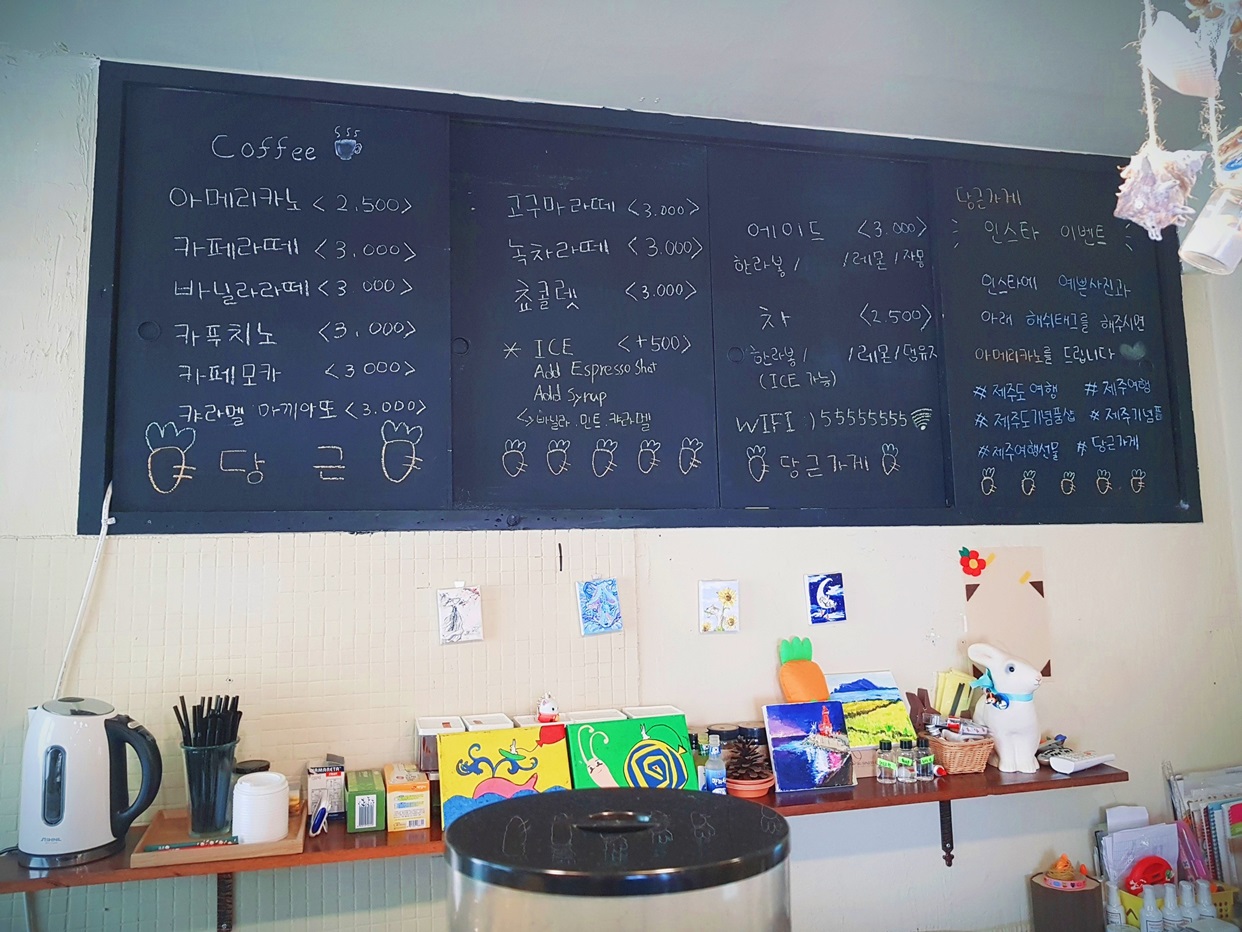 Coffee
아메리카노 < 2.500>
카페라떼 <3.000>
바닐라라떼 <3 000>
카푸치노 <3.000>
카페모카 <3 000>
캬라멜 마끼아또 <3.000>
당 근
고구마라떼 <3.000>
녹차라떼 <3.000>
쵸콜렛 <3.000>
* ICE <+500>
Add Espresso Shot
Add Syrup
<>바닐라. 민트 캬라멜
에이드 <3.000>
한라봉 / /레몬 /자몽
차 <2.500>
한라봉 / /레몬/댕유지
(ICE 가능)
WIFI :)55555555
당근가게
당근가게
인스타 이벤트
인스타에 예쁜사진과
아래 해쉬태그를 해주시면
아메리카노를 드립니다
#제주도여행 #제주여행
#제주도기념품샵 #제주기념품
#제주여행선물 #당근가게